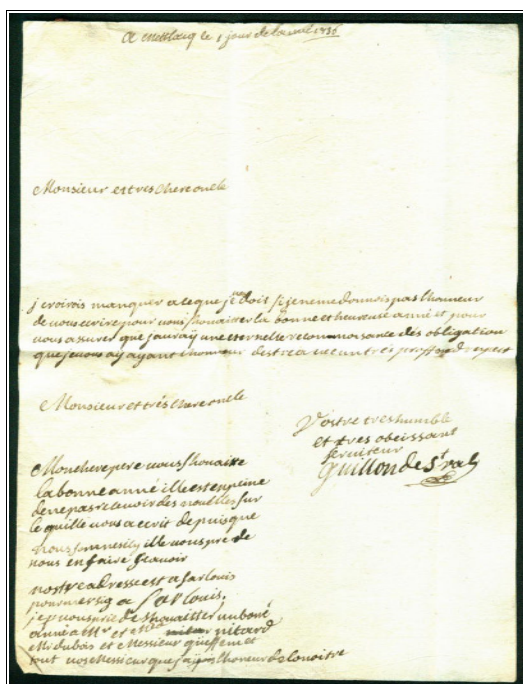 a mettlacq le 1 jour de lanné 1736
Monsieur et tres chere oncle
j croirois manquer a ce que je vous doit si je ne me donnois pas lhonneur
de vous ecrire pour vous shouaitter la bonne et heureuse anné et pour
vous assurer que jauray une eternelle reconnoisance des obligation
que je vous ay ayant lhonneur destre avec un tres proffond respect
Monsieur et trés chere oncle
Vostre tres humble
et tres obeissant
serviteur
guillon de St
Mon chere pere vous shouaitte
la bonne anné ille est en peine
de ne pas recevoir des nouvelles sur
le quille vous a ecrit depuis que
nous sommes icy ille vous prie de
nous en faire scavoir
nostre adresse est a sarlouis
pour mersig a sarlouis.
je vous prie de shouaitter un boné
anné a Mr et Md nitard
Mr dubois et Messieur et
tout vos Messieur que jay lhoneur de conoitre